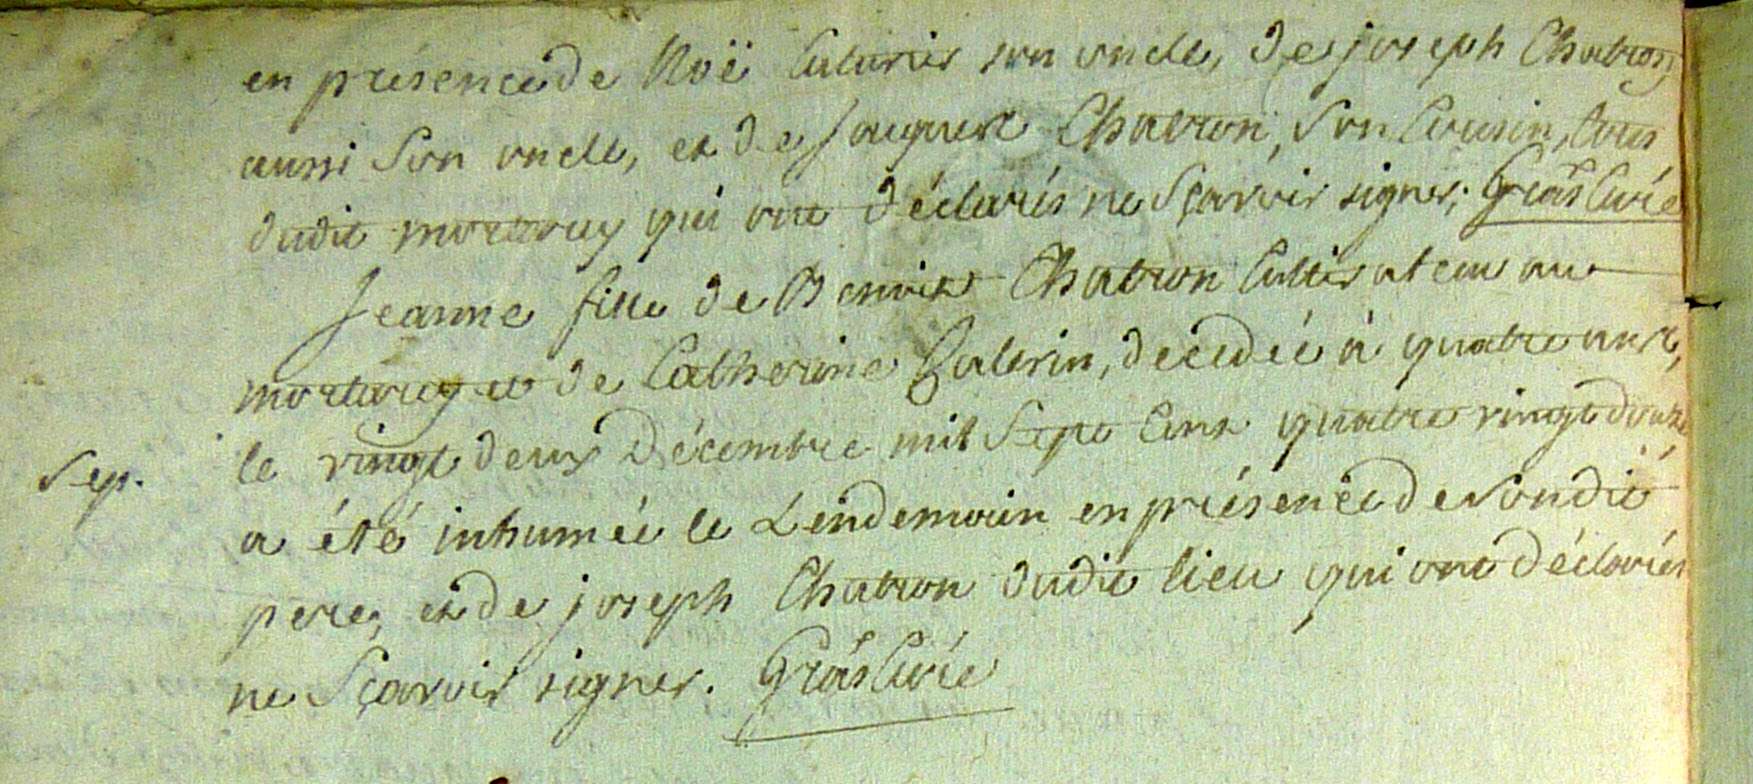 en présence de Noë Cutivier son oncle, de joseph Chatron
aussi Son oncle, et de Jacques Chatron, Son Cousin, tous
dudit mortarey qui ont déclarés ne Sçavoir signer; Gras Curé
Jeanne fille de Benoist Chatron Cultivateur au
mortarey et de Catherine Galvrin, decedée à quatre ans,
le vingt deux Décembre mil Sept Cent quatre vingt douze
Sep.
a été inhumée le Lendemain en présence de Sondit
pere, et de joseph Chatron dudit lieu qui ont déclarés
ne Sçavoir signer. Gras Curé